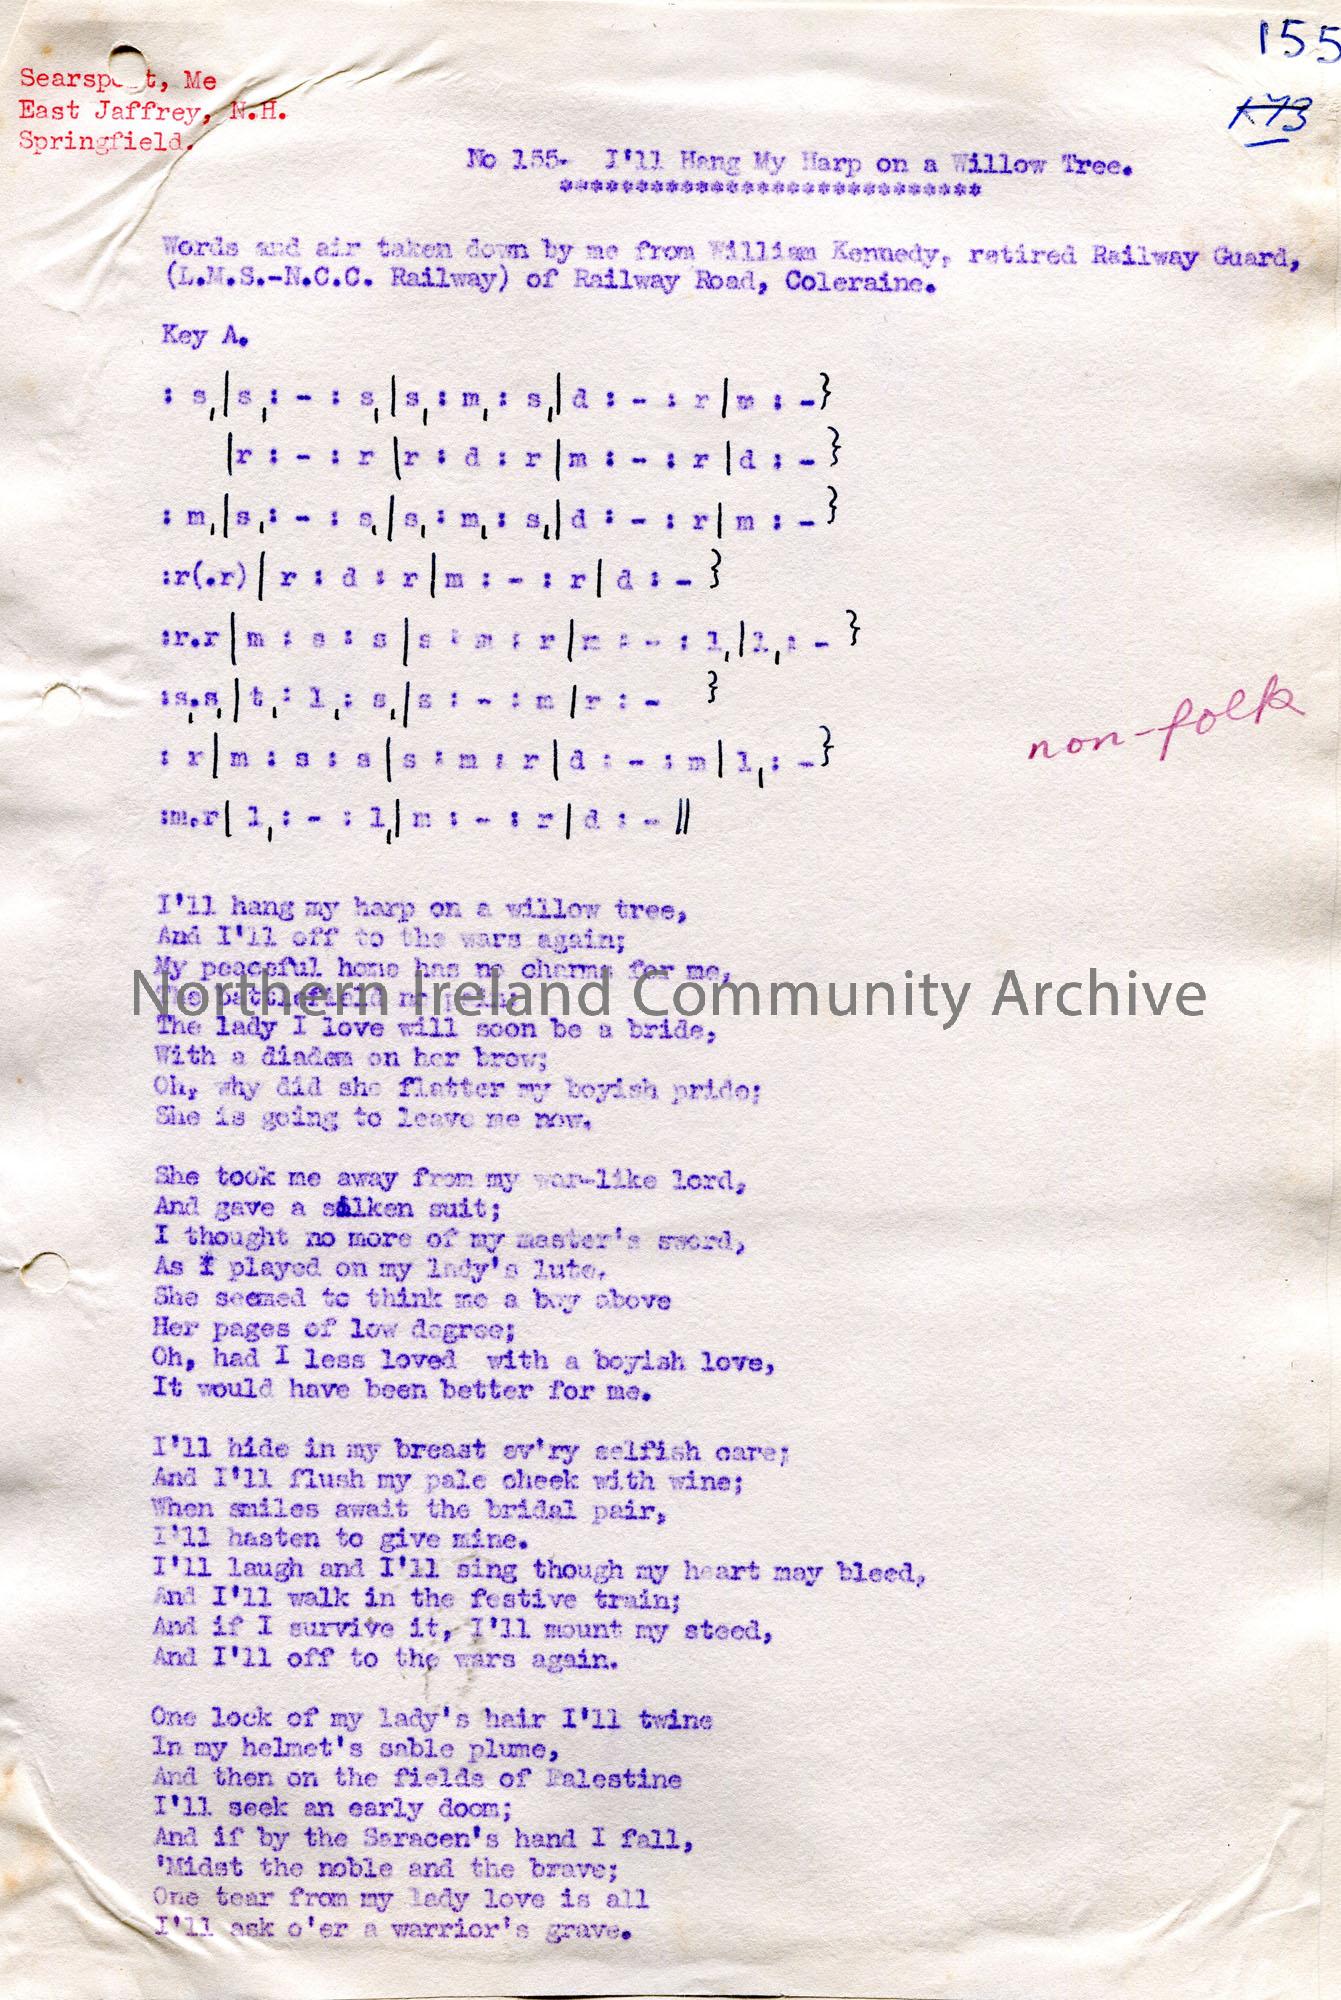 155
K73
Searsport, Me
East Jaffrey, N.H.
Springfield.
No 155- I'll Hang My Harp on a Willow Tree.
****************************
Words and air taken down by me from William Kennedy, retired Railway Guard,
(L.M.S.-N.C.C. Railway) of Railway Road, Coleraine.
Key A.
: s,|s,: - : s,|s,: m,: s,|d : - : r|m : -}
|r : - : r |r : d : r|m : - : r|d : -}
: m,|s,: - : s,|s,: m,: s,|d : - : r|m : -}
:r(.r)|r : d : r|m : - : r|d : -}
:r.r|m : s : s|s : m : r|m : - : l,|l,: -}
:s,.s,|t,: l,: s,|s : - : m|r : - }
: r|m : s : s|s : m : r|d : - : m|l,: -}
:m.r|l,: - : l,|m : - : r|d : -||
non-folk
I'll hang my harp on a willow tree,
And I'll off to the wars again;
My peaceful home has no charms for me,
The battlefield no pain;
Northern Ireland Community Archive
The lady I love will soon be a bride,
With a diadem on her brow;
Oh, why did she flatter my boyish pride;
She is going to leave me now.
She took me away from my war-like lord,
And gave a silken suit;
I thought no more of my master's sword,
As I played on my lady's lute.
She seemed to think me a boy above
Her pages of low degree;
Oh, had I less loved with a boyish love,
It would have been better for me.
I'll hide in my breast ev'ry selfish care;
And I'll flush my pale cheek with wine;
When smiles await the bridal pair,
I'll hasten to give mine.
I'll laugh and I'll sing though my heart may bleed,
And I'll walk in the festive train;
And if I survive it, I'll mount my steed,
And I'll off to the wars again.
One lock of my lady's hair I'll twine
In my helmet's sable plume,
And then on the fields of Palestine
I'll seek an early doom;
And if by the Saracen's hand I fall,
'Midst the noble and the brave;
One tear from my lady love is all
I'll ask o'er a warrior's grave.